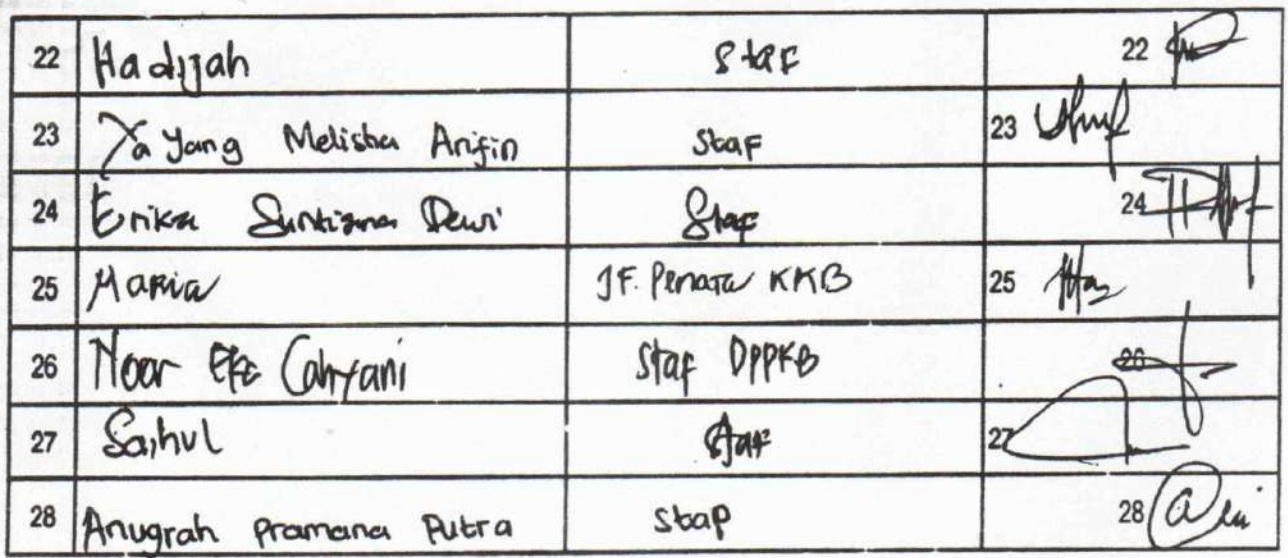 22 Hadijah Staf 22
23 Yayang Melisha Arifin Staf 23
24 Erika Dewi Staf 24
25 Maria JF. Penata KKB 25
26 Noor Eka Cahyani Staf DPPKB 26
27 Saihul Staf 27
28 Anugrah Pramana Putra Stap 28